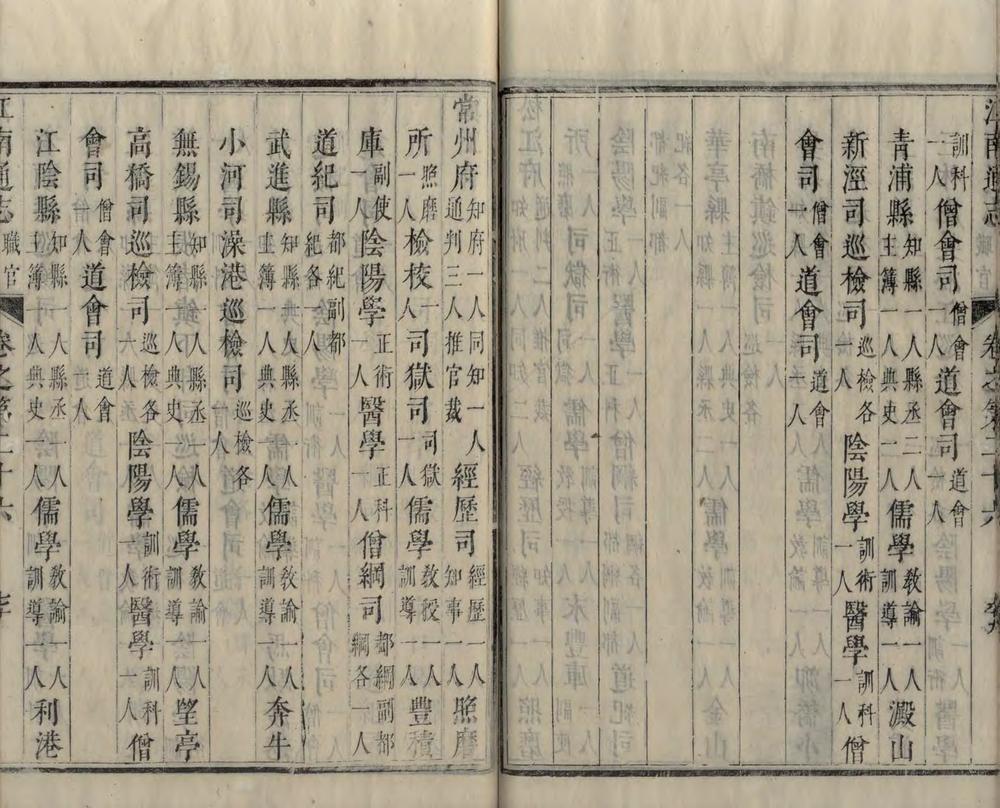 江南通志 職官 卷之第二十六
訓科一人僧會司僧會一人道會司道會一人
青浦縣知縣一人縣丞二人主簿一人典史一人儒學教諭一人訓導一人澱山
新涇司巡檢司巡檢各一人陰陽學訓術一人醫學訓科一人僧
會司僧會一人道會司道會一人
常州府知府一人同知一人通判三人推官裁經歷司經歷一人知事一人照磨
所照磨一人檢校一人司獄司司獄一人儒學教授一人訓導一人豐積
庫副使一人陰陽學正術一人醫學正科一人僧綱司都綱副都綱各一人
道紀司都紀副都紀各一人
武進縣知縣一人縣丞一人主簿一人典史一人儒學教諭一人訓導一人奔牛
小河司澡港巡檢司巡檢各一人
無錫縣知縣一人縣丞一人主簿一人典史一人儒學教諭一人訓導一人望亭
高橋司巡檢司巡檢各一人陰陽學訓術一人醫學訓科一人僧
會司僧會一人道會司道會一人
江陰縣知縣一人縣丞一人主簿一人典史一人儒學教諭一人訓導一人利港
江南通志 職官 卷之第二十六